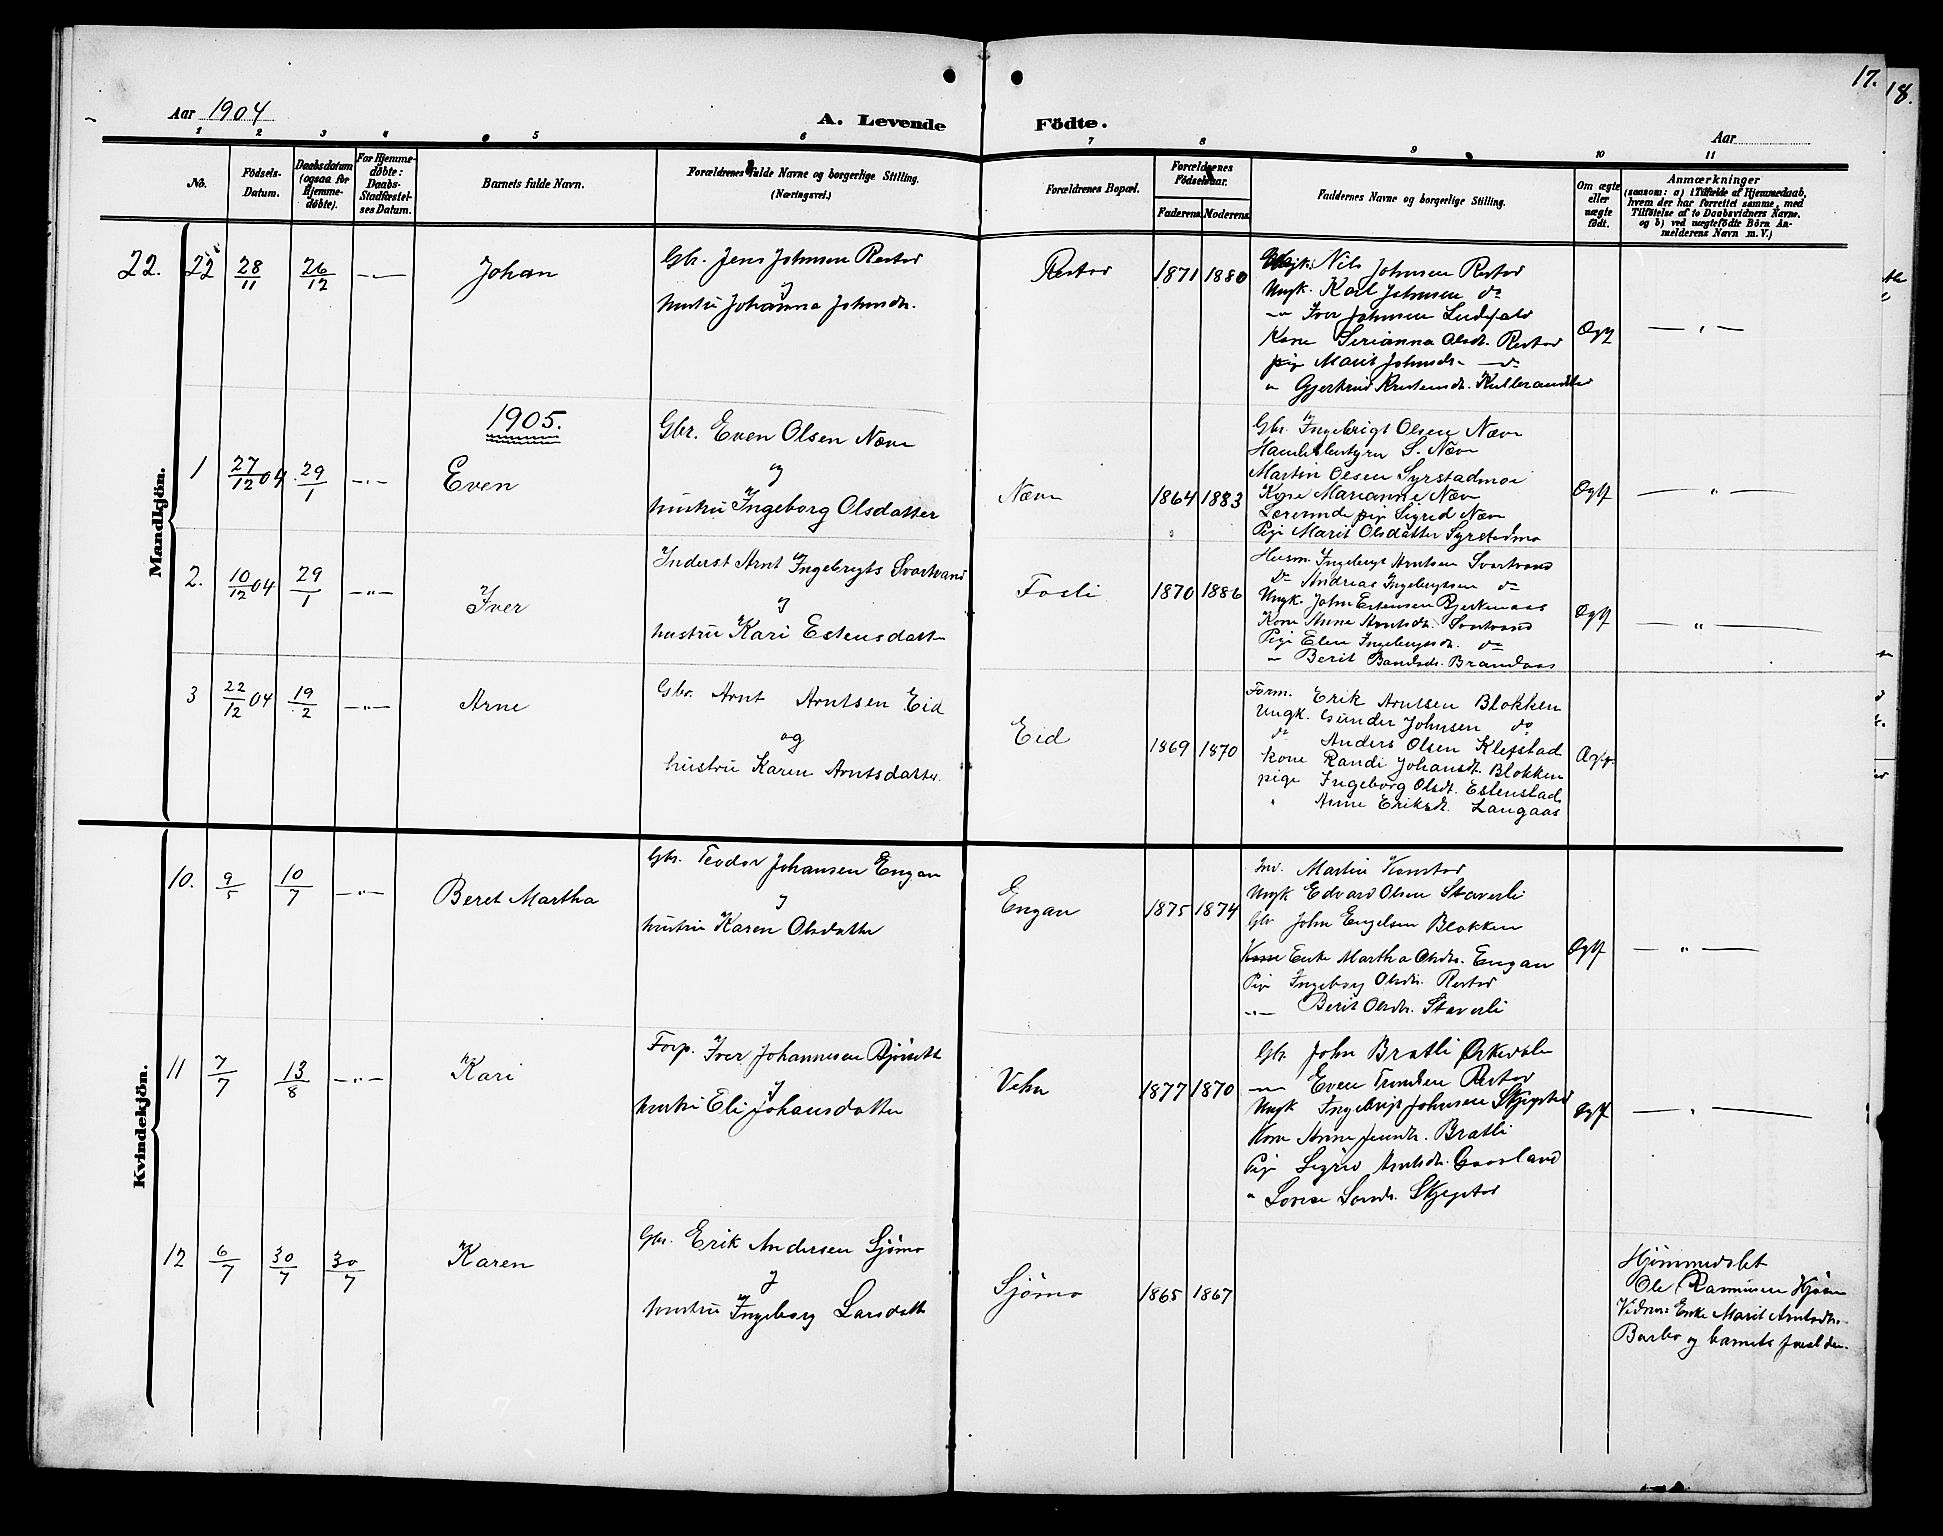 17.
18.
Aar 1904
A. Levende Födte.
Aar
1 2 3 4 5 6 7 8 9 10 11
No.
Födsels-
Datum.
Daabsdatum
(ogsaa for
Hjemme-
døbte).
For Hjemme-
døbte:
Daabs-
Stadfæstel-
ses Datum.
Barnets fulde Navn.
Forældrenes fulde Navne og borgerlige Stilling.
(Næringsvei.)
Forældrenes Bopæl.
Forældrenes
Födselsaar.
Faderens. Moderens.
Faddernes Navne og borgerlige Stilling.
Om ægte
eller
uægte
födt.
Anmærkninger
(saasom: a) i Tilfælde af Hjemmedaab,
hvem der har forrettet samme, med
Tilföielse af to Daabsvidners Navne.
og b) ved uægtefödte Börn An-
melderens Navn m. V.)
Mandkjön.
22. 22 28/11 26/12 -„- Johan
Gbr. Jens Johnsen Restad
og
hustru Johanna Johnsdtr.
Restad 1871 1880
Nils Johnsen Restad
Ungk. Karl Johnsen do
-„- Iver Johnsen
Kone Serianna Olsdt. Restad
pige Marit Johnsdt. do
„ Gjertrud
Ægte
— „ —
1905.
1 27/12 04 29/1 -„- Even
Gbr. Even Olsen Næve
og
hustru Ingeborg Olsdatter
Næve 1864 1883
Gbr. Ingebrigt Olsen Næve
S. Næve
Martin Olsen Syrstadmoe
Kone Marianne Næve
Lærerinde pige Sigrid Næve
Pige Marit Olsdatter Syrstadmo
Ægte
— „ —
2. 10/12 04 29/1 -„- Iver
Inderst Arnt Ingebrigts Svartvand
og
hustru Kari Estensdatter
Fosli 1870 1886
Husm. Ingebrigt Arntsen Svartvand
Do Andreas Ingebrigtsen do
Ungk. John Estensen Bjerkenaas
Kone Anne Arntsdt. Svartvand
Pige Elen Ingebrigtsdt. do
-„- Berit Brandaas
Ægte
— „ —
3 22/12 04 19/2 -„- Arne
Gbr. Arnt Arntsen Eid
og
hustru Karen Arntsdatter.
Eid 1869 1870
Form. Erik Arntsen Blokken
Ungk. Gunder Johnsen do
do Anders Olsen Klefstad
kone Randi Johansdt. Blokken
pige Ingeborg Olsdt. Estenstad
„ Anne Eriksdt. Langaas
Ægte
Kvindekjön.
10. 9/5 10/7 -„- Beret Martha
Gbr. Teodor Johansen Engan
og
hustru Karen Olsdatter
Engan 1875 1874
Martin
Ungk Edvard Olsen Staverli
Gbr John Engelsen Blokken
Kone Enke Martha Olsdtr. Engan
Pige Ingeborg Olsdtr. Restad
-„- Berit Olsdtr. Staverli
Ægte
— „ —
11 7/7 13/8 -„- Kari
Forp. Iver Johannesen Bjørsett
og
hustru Eli Johansdatter
Vehn 1877 1870
Gbr John Bratli Orkedalen
-„- Even Trondsen Restad
Ungk Ingebrigt Johnsen Skjegstad
Kone Anne Jensdtr. Bratli
Pige Sigrid Arntsdtr. Gaasland
„ Lovise Skjegstad
Ægte
— „ —
12 6/7 30/7 30/7 Karen
Gbr. Erik Andersen Sjømo
og
hustru Ingeborg Larsdatter
Sjømo 1865 1867
Hjemmedøbt
Ole Rasmusen
Vidner: Enke Marit Arntsdtr.
Barbo og barnets forældre.